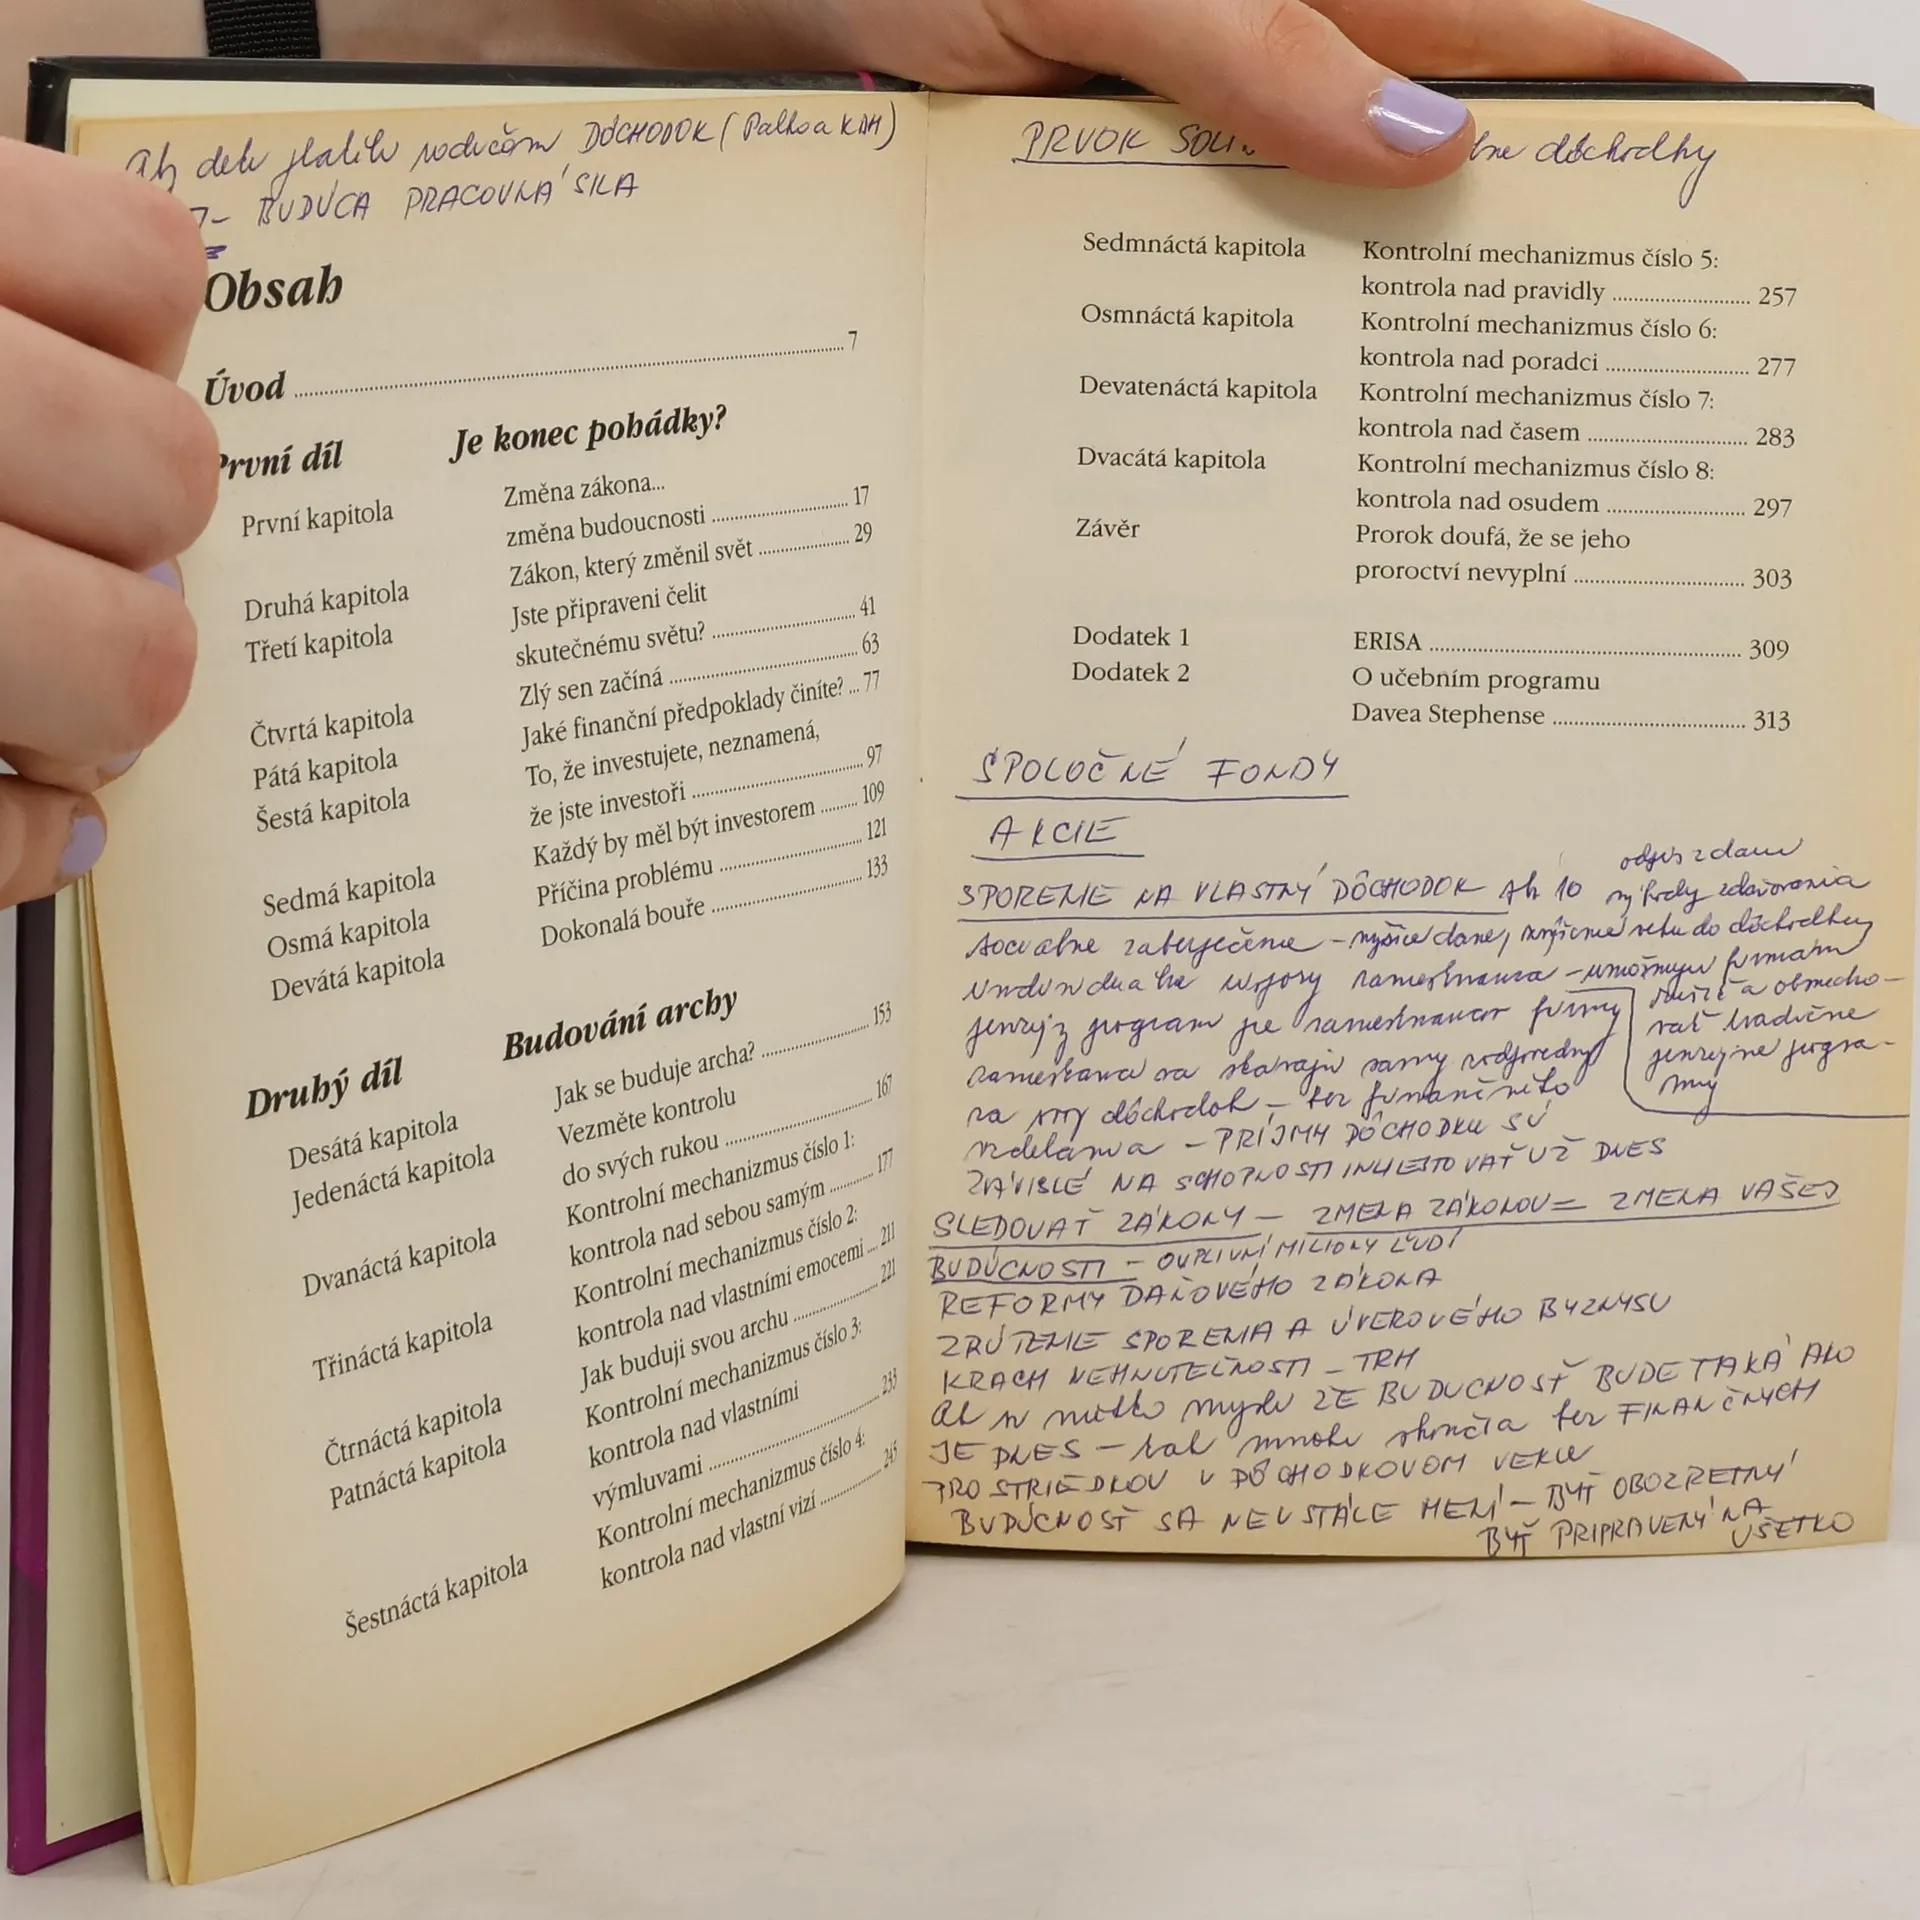 deti platili rodičom DÔCHODOK (Palkoa KDH)
BUDÚCA PRACOVNÁ SILA
Obsah
Úvod ........ 7
První díl Je konec pohádky?
První kapitola Změna zákona...
změna budoucnosti ........ 17
Druhá kapitola Zákon, který změnil svět ........ 29
Třetí kapitola Jste připraveni čelit
skutečnému světu? ........ 41
Čtvrtá kapitola Zlý sen začíná ........ 63
Pátá kapitola Jaké finanční předpoklady činíte? ... 77
Šestá kapitola To, že investujete, neznamená,
že jste investoři ........ 97
Sedmá kapitola Každý by měl být investorem ........ 109
Osmá kapitola Příčina problému ........ 121
Devátá kapitola Dokonalá bouře ........ 133
Druhý díl Budování archy
Desátá kapitola Jak se buduje archa? ........ 153
Jedenáctá kapitola Vezměte kontrolu
do svých rukou ........ 167
Dvanáctá kapitola Kontrolní mechanizmus číslo 1:
kontrola nad sebou samým ........ 177
Třináctá kapitola Kontrolní mechanizmus číslo 2:
kontrola nad vlastními emocemi ... 211
Čtrnáctá kapitola Jak buduji svou archu ........ 221
Patnáctá kapitola Kontrolní mechanizmus číslo 3:
kontrola nad vlastními
výmluvami ........ 233
Šestnáctá kapitola Kontrolní mechanizmus číslo 4:
kontrola nad vlastní vizí ........ 245
PRVOK dôchodky
Sedmnáctá kapitola Kontrolní mechanizmus číslo 5:
kontrola nad pravidly ........ 257
Osmnáctá kapitola Kontrolní mechanizmus číslo 6:
kontrola nad poradci ........ 277
Devatenáctá kapitola Kontrolní mechanizmus číslo 7:
kontrola nad časem ........ 283
Dvacátá kapitola Kontrolní mechanizmus číslo 8:
kontrola nad osudem ........ 297
Závěr Prorok doufá, že se jeho
proroctví nevyplní ........ 303
Dodatek 1 ERISA ........ 309
Dodatek 2 O učebním programu
Davea Stephense ........ 313
SPOLOČNÉ FONDY
AKCIE
SPORENIE NA VLASTNÝ DÔCHODOK 10
výhody zdaňovania
sociálne zabezpečenie – vyššie dane, zvýšenie veku do dôchodku
individuálne úspory zamestnanca – umožnujú firmám
penzijný program pre zamestnancov firmy
zamestnanci sa stávajú
za svoj dôchodok – bez finančného
vzdelania – PRÍJMY DÔCHODKU SÚ
ZÁVISLÉ NA SCHOPNOSTI INVESTOVAŤ UŽ DNES
a obmedzo-
vať tradičné
penzijné progra-
my
SLEDOVAŤ ZÁKONY – ZMENA ZÁKONOV = ZMENA VAŠEJ
BUDÚCNOSTI – OVPLIVNÍ MILIONY ĽUDÍ
REFORMY DAŇOVÉHO ZÁKONA
ZRÚTENIE SPORENIA A ÚVEROVÉHO BYZNYSU
KRACH NEHNUTEĽNOSTI – TRH
Ak si niekto myslí ŽE BUDÚCNOSŤ BUDE TAKÁ AKO
JE DNES – tak mnohí skončia bez FINANČNÝCH
PROSTRIEDKOV V DÔCHODKOVOM VEKU
BUDÚCNOSŤ SA NEUSTÁLE MENÍ – BYŤ OBOZRETNÝ
BYŤ PRIPRAVENÝ NA
VŠETKO